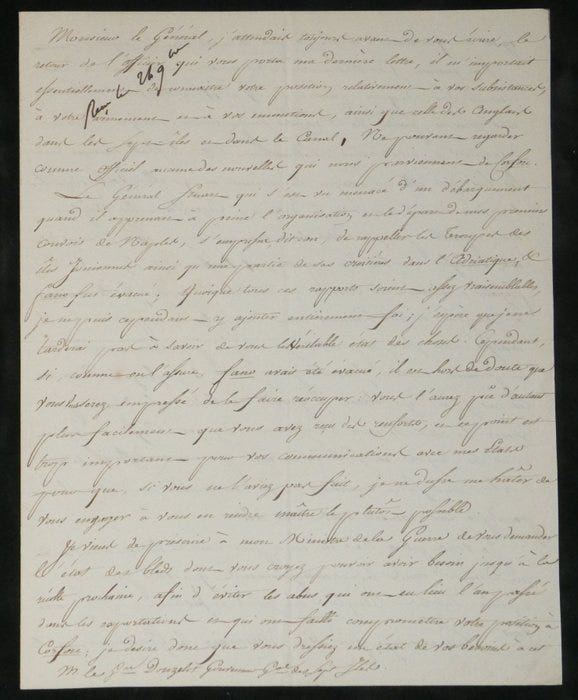 Monsieur le Général, j'attendais toujours avant de vous écrire, le
retour de l'officier qui vous porta ma dernière lettre, il m'important
essentiellement de connaitre votre position relativement à vos subsistances,
à votre armement et à vos munitions, ainsi que celle des Anglais
dans les Sept îles et dans le Canal, Ne pouvant regarder
comme officiel aucune des nouvelles qui nous parviennent de Corfou.
Le Général Stuart qui s'est vu menacé d'un débarquement
quand il apprenait à peine l'organisation et le départ de nos premiers
convois de Naples, s'empressa dit-on, de rappeller les troupes des
îles Ioniennes ainsi qu'une partie de ses croisières dans l'Adriatique, &
fano fut évacué. Quoique tous ces rapports soient assez vraisemblables,
je ne puis cependant y ajouter entièrement foi; j'espère que je ne
tarderai pas à savoir de vous le véritable état des choses. Cependant,
si, comme on l'assure, fano avait été évacué, il est hors de doute que
vous empressé de la faire réoccuper: vous l'aurez pû d'autant
plus facilement que vous avez reçu des renforts, et ce point est
trop important pour vos communications avec mes Etats
pour que, si vous ne l'aviez pas fait, je ne dusse me hâter de
vous engager à vous en rendre maître le plutôt possible.
Je viens de prescrire à mon Ministre de la Guerre de vous demander
l'état des bleds dont vous croyez pouvoir avoir besoin jusqu'à la
récolte prochaine, afin d'éviter les abus qui ont eu lieu l'an passé
dans les exportations et qui ont failli compromettre votre position à
Corfou; je desire donc que vous dressiez un état de vos besoins à cet
M. le Gal Donzelot Gouverneur Gal des Sept Iles
26 9